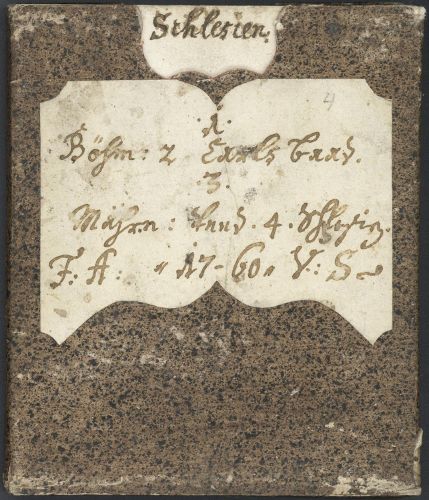 Schlesien.
4
1.
Böhm: 2 Carls baad.
3.
Mährn: Land. 4. Schlesig.
F. A: " 17-60 " V: S